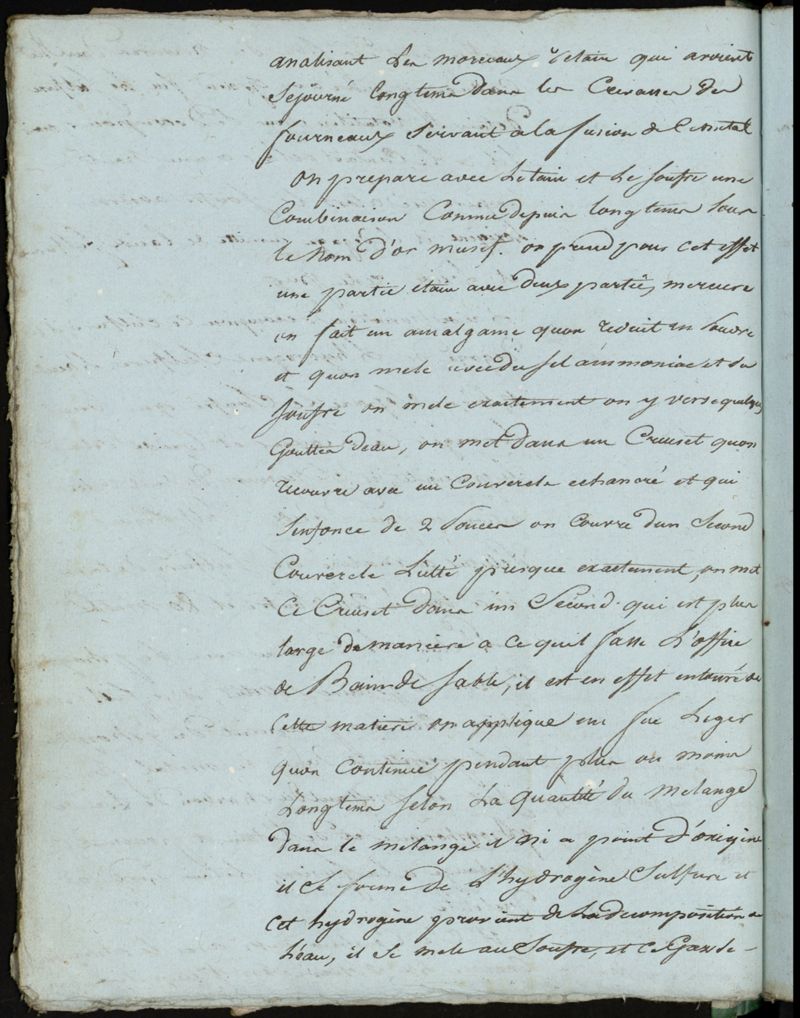 analisant des morceaux d'etain qui avoient
Sejourné longtems dans les Crevasses des
fourneaux servant a la fusion de l'metal
on prepare avec l'etain et le soufre une
Combinaison Connue depuis longtems sous
le Nom d'or musif. on prend pour cet effet
une partie etain avec deux parties mercure
on fait un amalgame quon reduit en Poudre
et quon mele avec du sel ammoniac et du
soufre on mele exactement on y verse quelques
Gouttes deau, on met dans un Creuset quon
recouvre avec un Couvercle echancré et qui
s'enfonce de 2 Pouces on Couvre dun Second
Couvercle Lutté presque exactement, on met
Ce Creuset dans un Second qui est plus
large de maniere a ce quil fasse L'office
de Bain de sable, il est en effet entouré de
Cette matiere on applique un feu Leger
quon Continue pendant plus ou moins
Longtems selon La quantité du melange
Dans le melange il ni a point d'oxigène
il se forme de L'hydrogène Sulfuré et
cet hydrogène provient de la decomposition de
l'eau, il se mele au Soufre, et ce Gaz de-